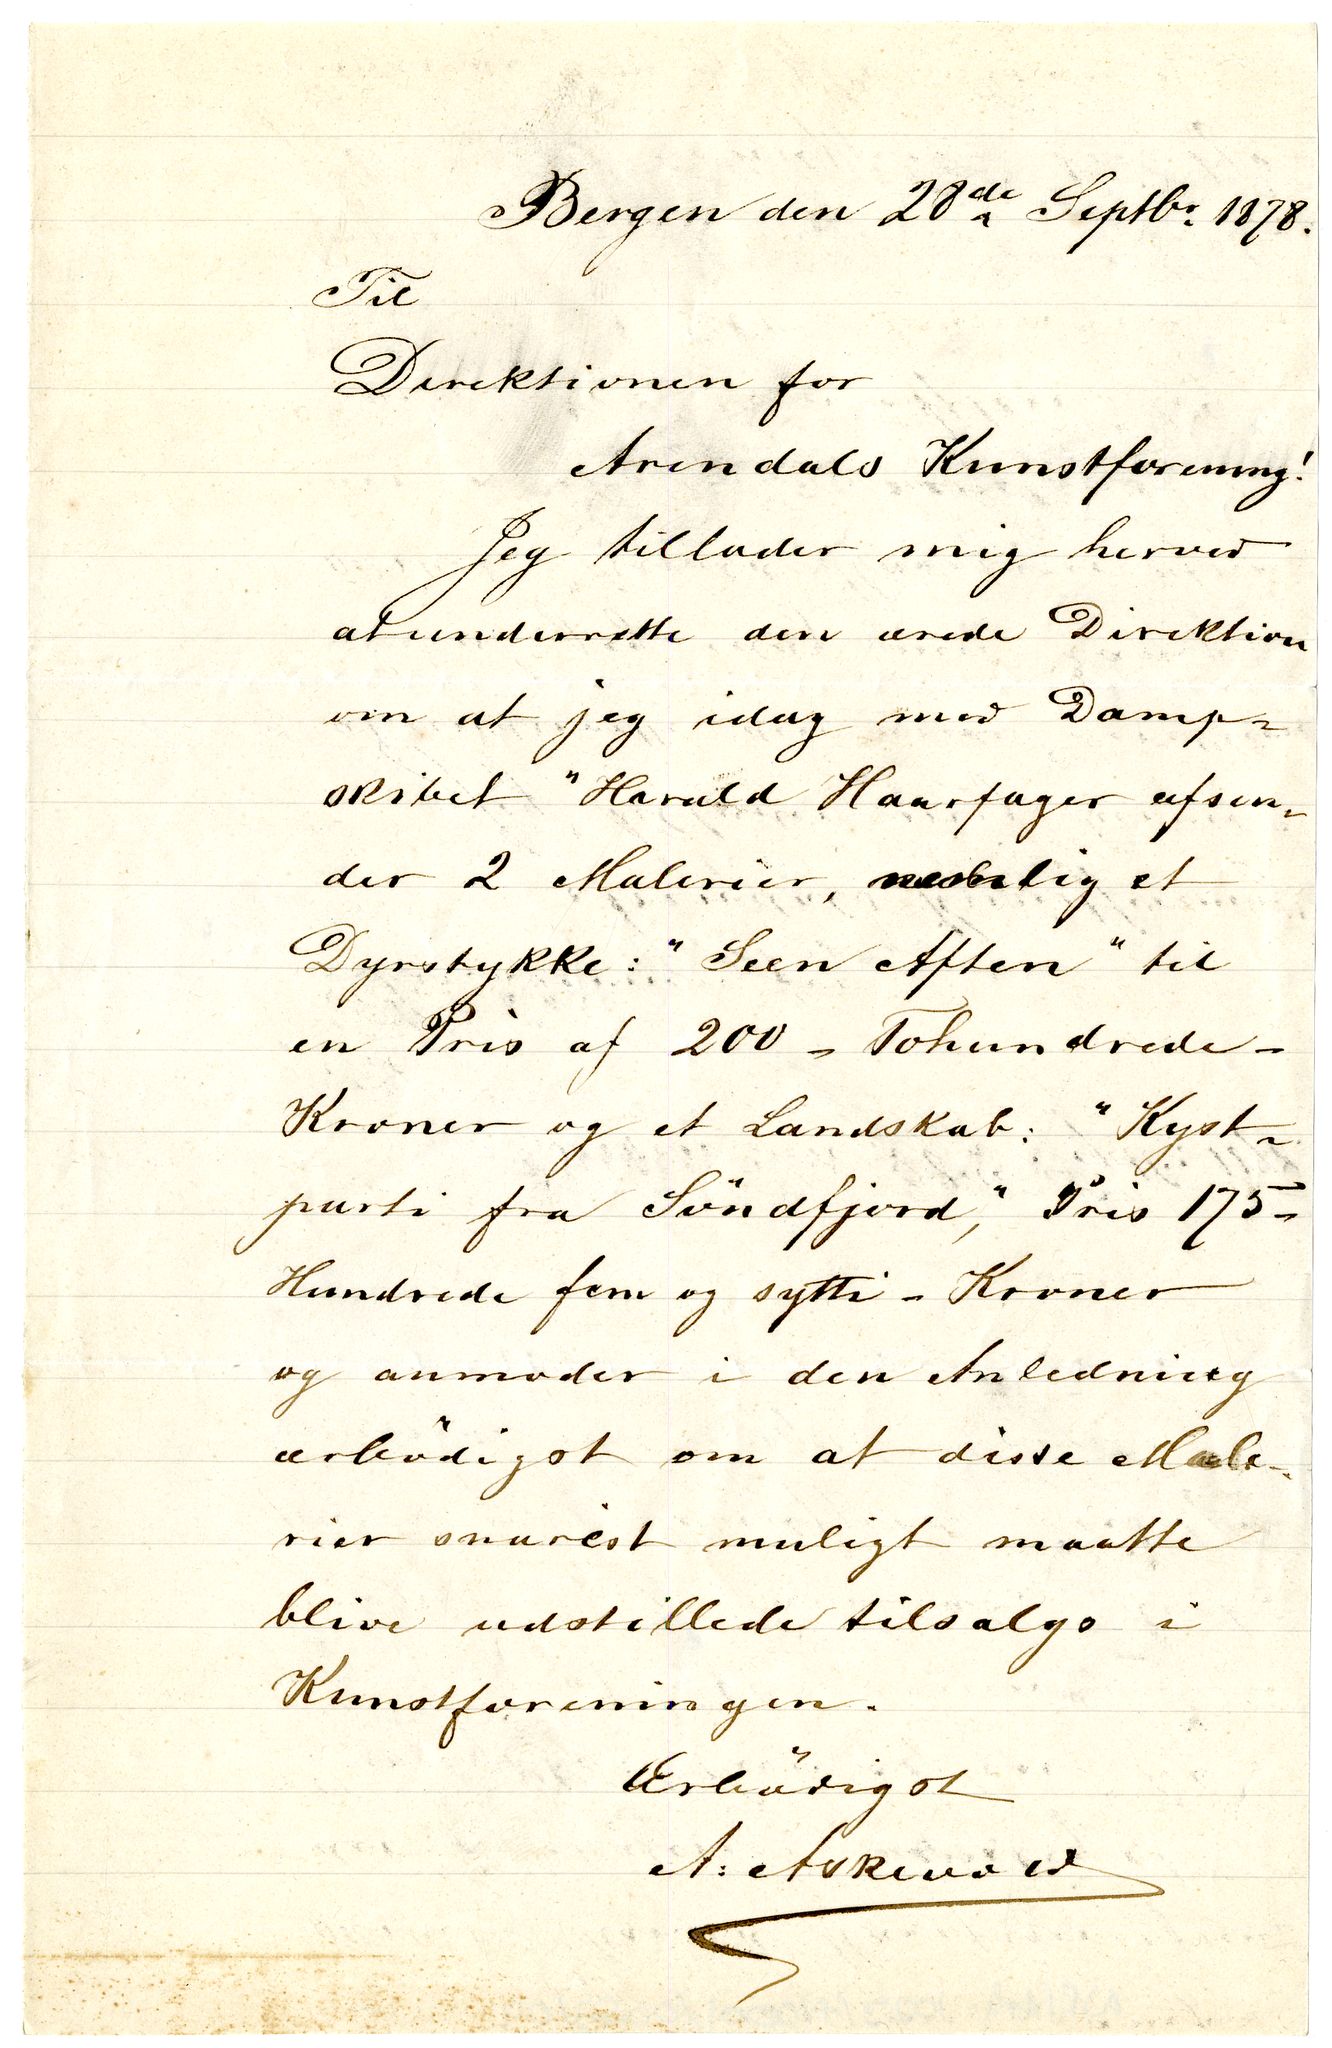 Bergen den 28de Septbr. 1878.
Til
Direktionen for
Arendals Kunstforening!
Jeg tillader mig herved
at underrette den ærede Direktion
om at jeg idag med Damp-
skibet "Harald Haarfager afsen-
der 2 Malerier, nemlig et
Dyrstykke: "Seen Aften" til
en Pris af 200 - Tohundrede -
Kroner og et Landskab: "Kyst-
parti fra Söndfjord," Pris 175 -
Hundrede fem og sytti - Kroner
og anmoder i den Anledning
ærbödigst om at disse Male-
rier snarest muligt maatte
blive udstillede tilsalgs i
Kunstforeningen.
Ærbödigst
A: Askevold